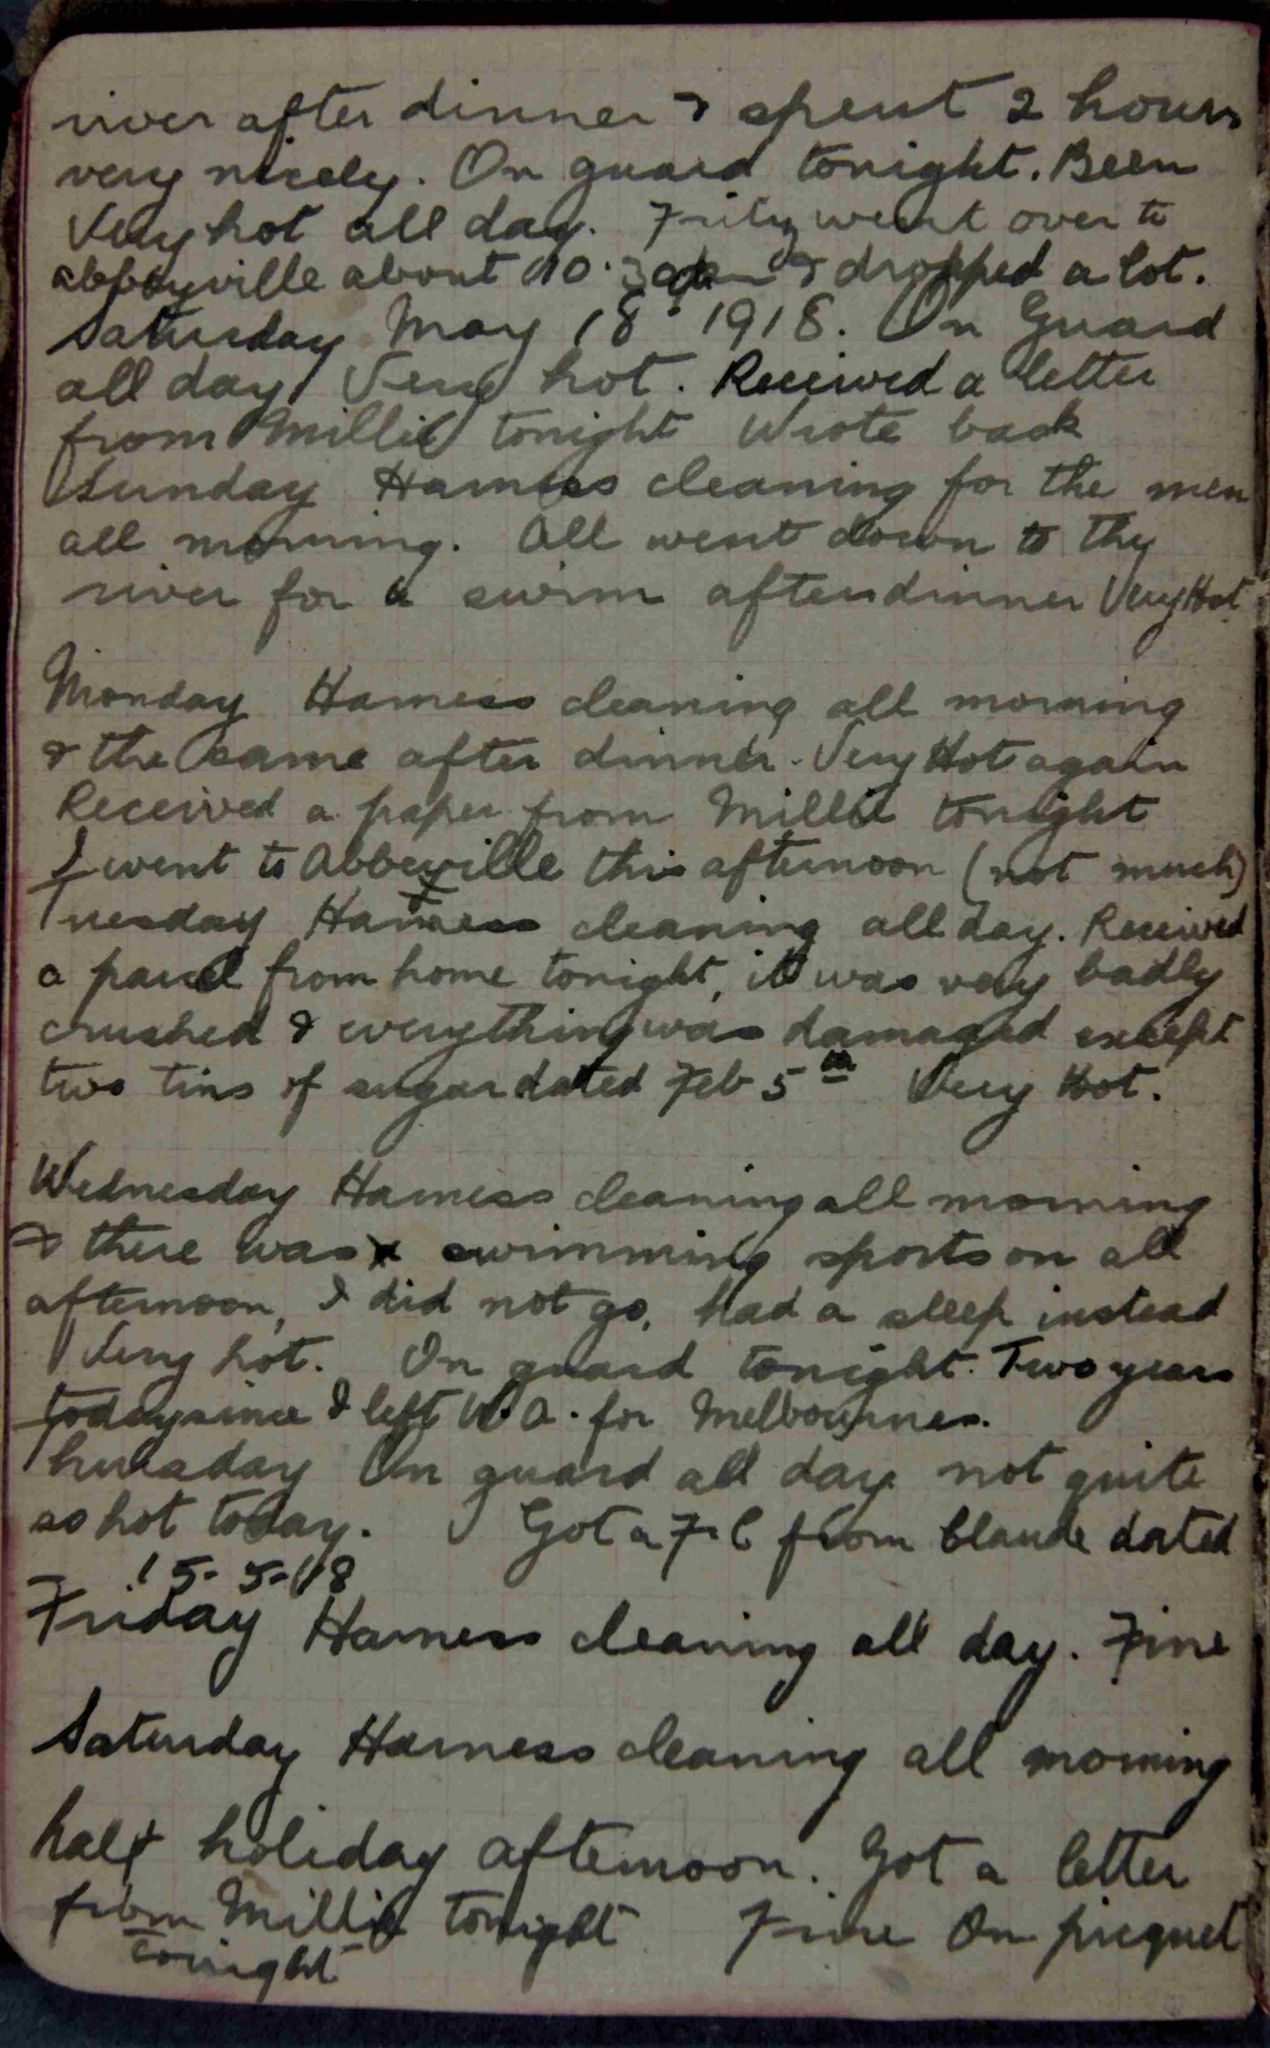 river after dinner & spent 2 hours
very nicely. On guard tonight. Been
Very hot all day. Fritz went over to
abbeyville about 10.30 pm & dropped a lot.
Saturday May 18 1918. On Guard
all day Very hot. Received a letter
from Millie tonight Wrote back
Sunday Harness cleaning for the men
all morning. All went down to the
river for a swim after dinner Very Hot
Monday Harness cleaning all morning
& the same after dinner. Very Hot again
Received a paper from Millie tonight
I went to Abbeville this afternoon (not much)
Tuesday Harness cleaning all day. Received
a parcel from home tonight, it was very badly
crushed & everything was damaged except
two tins of sugar dated Feb 5th Very Hot.
Wednesday Harness cleaning all morning
& there was swimming sports on all
afternoon, I did not go, had a sleep instead
Very hot. On guard tonight. Two years
today since I left W.A. for Melbourne.
Thursday On guard all day not quite
so hot today. Got a F.C from Claude dated
15-5-18
Friday Harness cleaning all day. Fine
Saturday Harness cleaning all morning
half holiday afternoon. Got a letter
from Millie tonight Fine On picquet
tonight